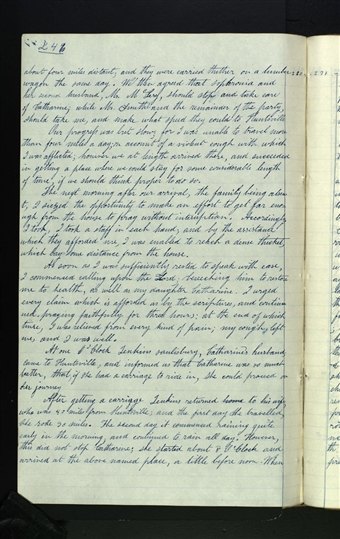 246
about four miles distant, and they were carried thither on a lumber
wagon the same day. We then agreed that Sophronia and
her husband, Mr. M Lery, should stop and take care
of Catharine, while Mr. Smith and the remainder of the party,
should take me, and make what speed they could to Huntsville
Our progress was but slow, for I was unable to travel more
than four miles a day, on account of a violent cough with which
I was afflicted; however we at length arrived there, and succeeded
in getting a place where we could stay for some considerable length
of time, if we should think proper to do so.
The next morning after our arrival, the family being absen
t, I seized the opportunity to make an effort to get far eno
ugh from the house to pray without interruption. Accordingly
I took, I took a staff in each hand, and by the assistance
which they afforded me, I was enabled to reach a dense thicket,
which lay some distance from the house.
As soon as I was sufficiently rested to speak with ease,
I commenced calling upon the Lord, beseeching him to restore
me to health, as well as my daughter Catharine. I urged
every claim which is afforded us by the scriptures, and continu
ed praying faithfully for three hours; at the end of which
time, I was relieved from every kind of pain; my cough left
me, and I was well.
At one O'Clock Jenkins Saulsbury, Catharine's husband,
came to Huntsville, and informed us that Catharine was so much
better, that if she had a carriage to ride in, she could proceed on
her journey.
After getting a carriage Jenkins returned to his wife
who was 40 miles from Huntsville, and the first day she travelled,
she rode 30 miles. The second day it commenced raining quite
early in the morning, and continued to rain all day. However,
this did not stop Catharine; she started about 8 O'Clock and
arrived at the above named place, a little before noon. When